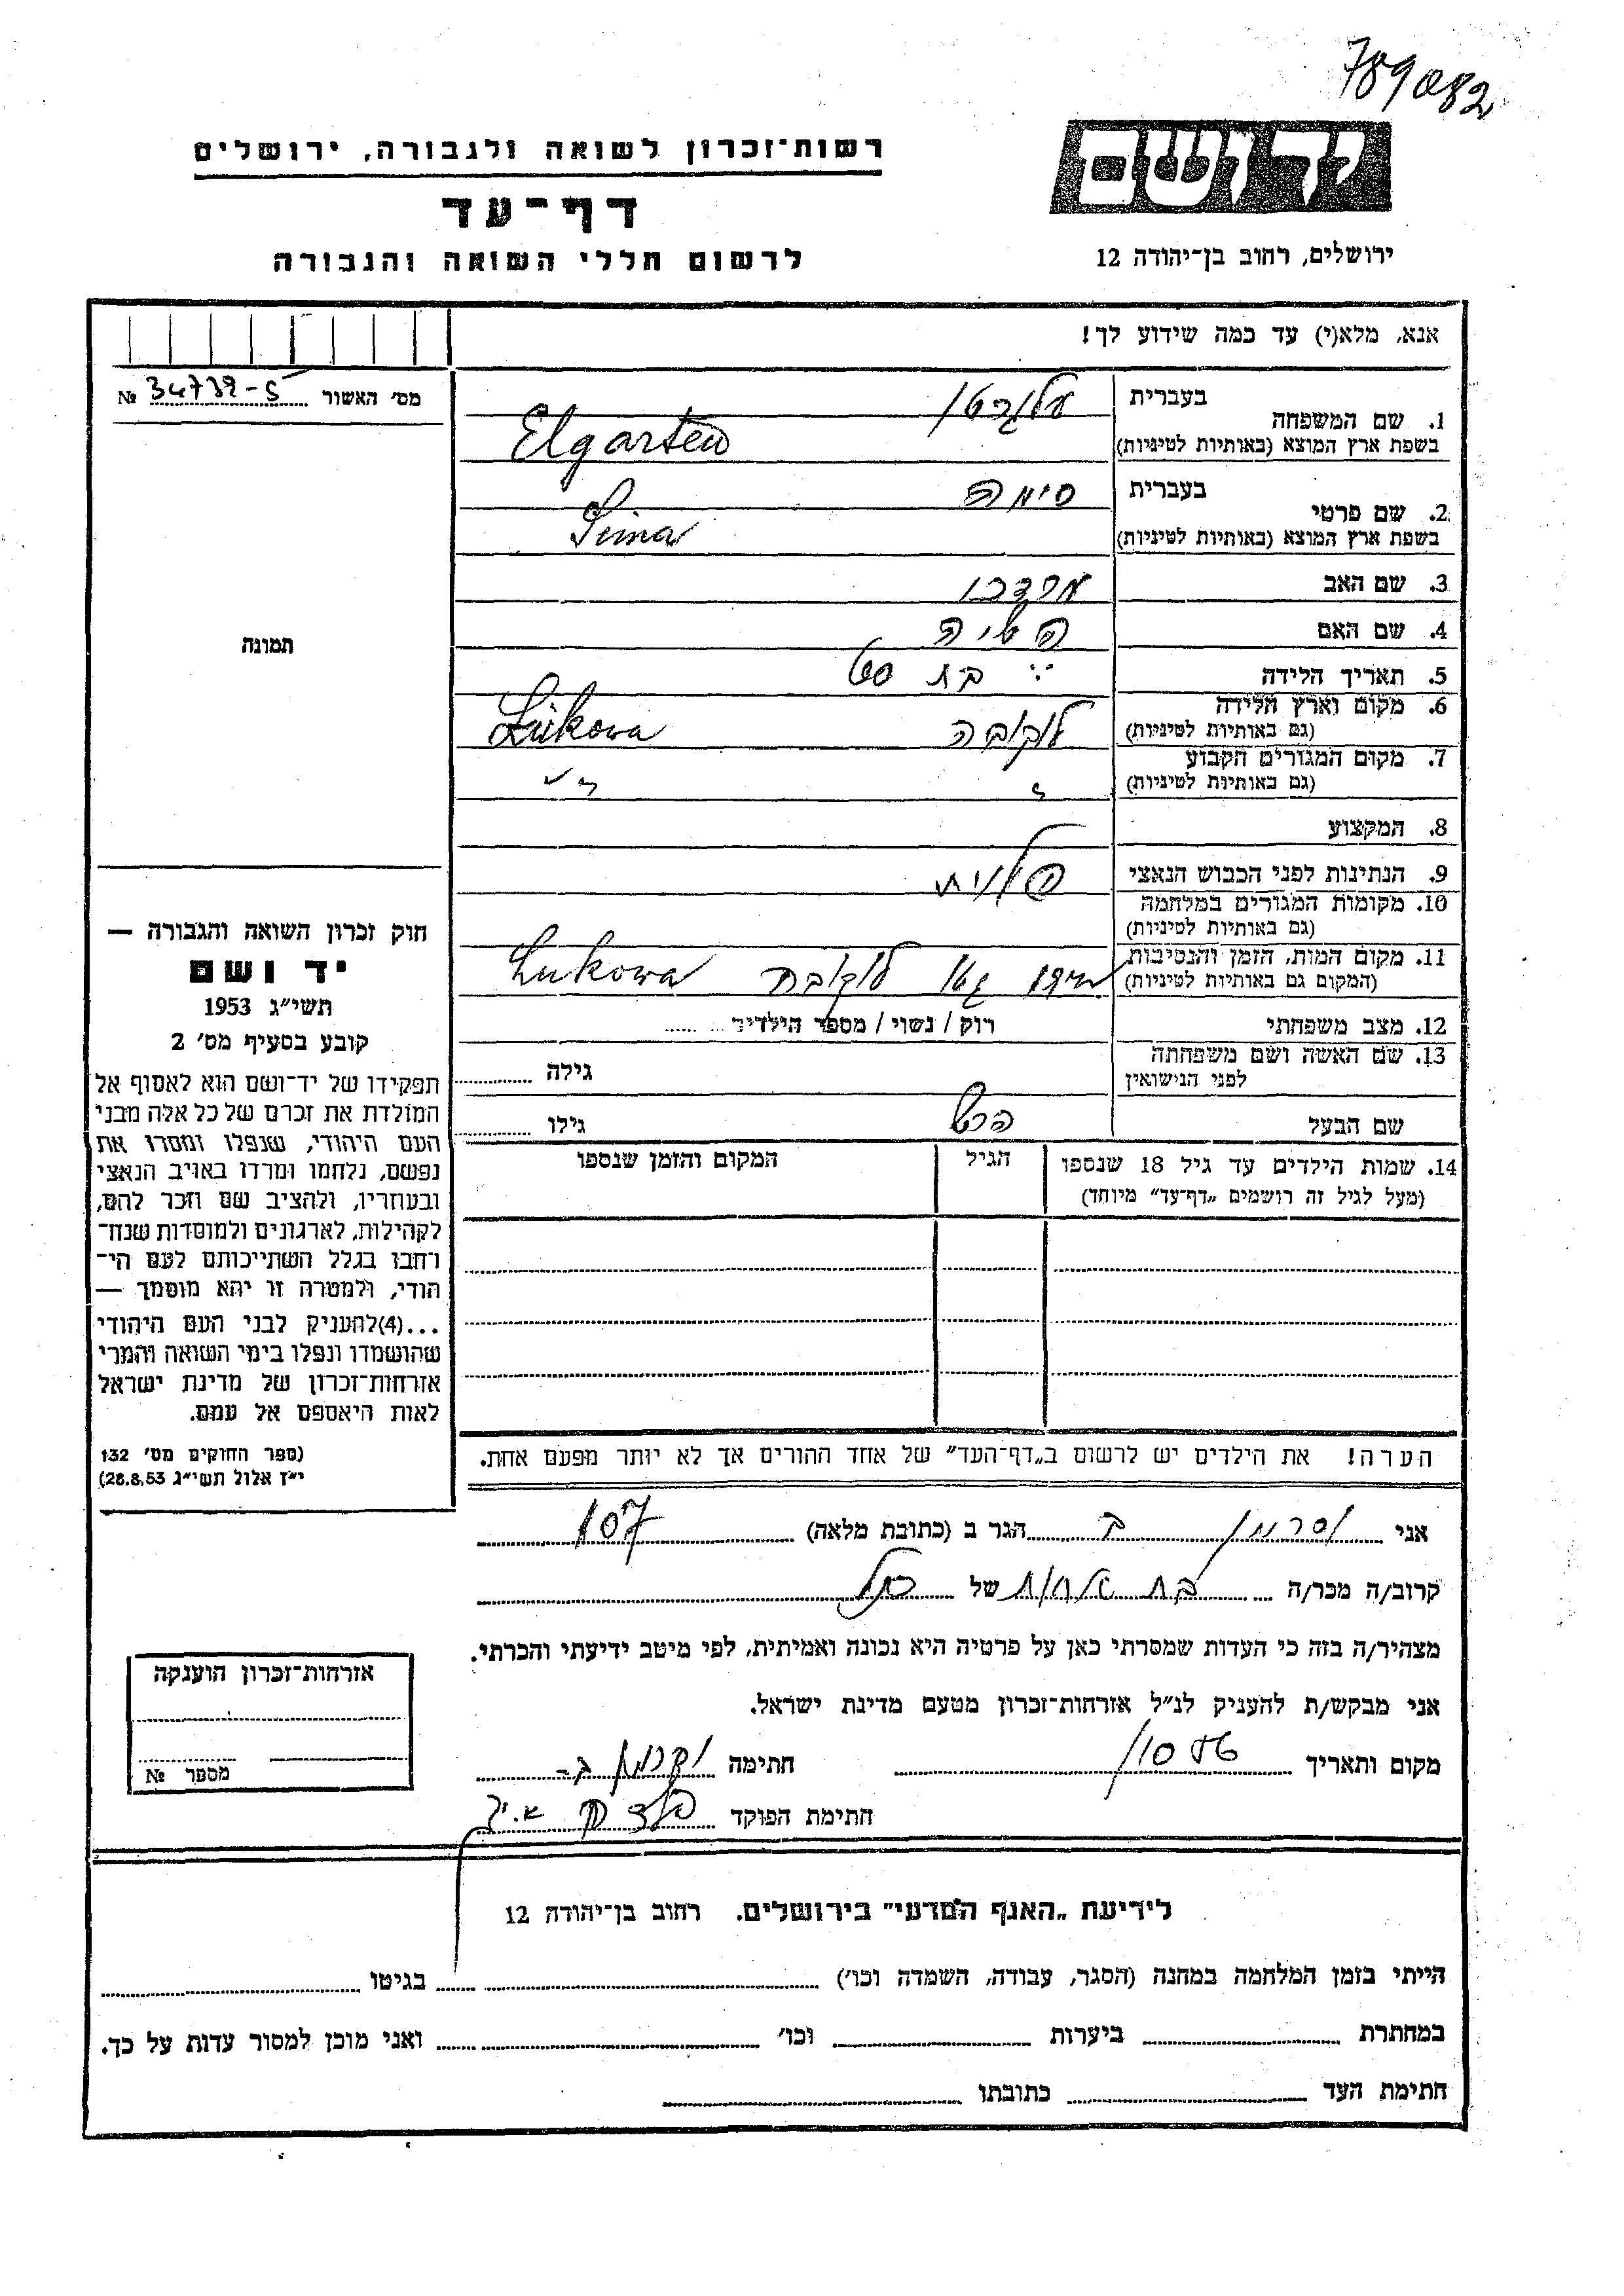 789082
יד ושם
רשות־זכרון לשואה ולגבורה, ירושלים
דף־עד
לרשום חללי השואה והגבורה
ירושלים, רחוב בן־יהודה 12
אנא, מלא(י) עד כמה שידוע לך!
מס׳ האשור 34739-5 №
תמונה
חוק זכרון השואה והגבורה —
יד ושם
תשי״ג 1953
קובע בסעיף מס׳ 2
תפקידו של יד־ושם הוא לאסוף אל
המולדת את זכרם של כל אלה מבני
העם היהודי, שנפלו ומסרו את
נפשם, נלחמו ומרדו באויב הנאצי
ובעוזריו, ולהציב שם וזכר להם,
לקהילות, לארגונים ולמוסדות שנח־
רחבו בגלל השתייכותם לעם הי־
הודי, ולמטרה זו יהא מוסמך —
...(4)להעניק לבני העם היהודי
שהושמדו ונפלו בימי השואה והמרי
אזרחות־זכרון של מדינת ישראל
לאות היאספם אל עמם.
(ספר החוקים מס׳ 132
י״ז אלול תשי״ג 28.8.53)
1. שם המשפחה בעברית
בשפת ארץ המוצא (באותיות לטיניות) Elgarten
2. שם פרטי בעברית סימה
בשפת ארץ המוצא (באותיות לטיניות) Sima
3. שם האב מרדכי
4. שם האם
5. תאריך הלידה בת
6. מקום וארץ הלידה לוקובה Lukowa
(גם באותיות לטיניות)
7. מקום המגורים הקבוע
(גם באותיות לטיניות)
8. המקצוע
9. הנתינות לפני הכבוש הנאצי פולנית
10. מקומות המגורים במלחמה
(גם באותיות לטיניות)
11. מקום המות, הזמן והנסיבות לוקובה Lukowa
(המקום גם באותיות לטיניות)
12. מצב משפחתי רוק / נשוי / מספר הילדים
13. שם האשה ושם משפחתה גילה
לפני הנישואין
שם הבעל הרש גילו
14. שמות הילדים עד גיל 18 שנספו הגיל המקום והזמן שנספו
(מעל לגיל זה רושמים „דף־עד״ מיוחד)
הערה! את הילדים יש לרשום ב„דף־העד״ של אחד ההורים אך לא יותר מפעם אחת.
אני הגר ב (כתובת מלאה)
קרוב/ה מכר/ה בת אחות של
מצהיר/ה בזה כי העדות שמסרתי כאן על פרטיה היא נכונה ואמיתית, לפי מיטב ידיעתי והכרתי.
אני מבקש/ת להעניק לנ״ל אזרחות־זכרון מטעם מדינת ישראל.
מקום ותאריך חתימה
חתימת הפוקד
אזרחות־זכרון הוענקה
מספר №
לידיעת „האגף המדעי״ בירושלים. רחוב בן־יהודה 12
הייתי בזמן המלחמה במחנה (הסגר, עבודה, השמדה וכו׳) בגיטו
במחתרת ביערות וכו׳ ואני מוכן למסור עדות על כך.
חתימת העד כתובתו